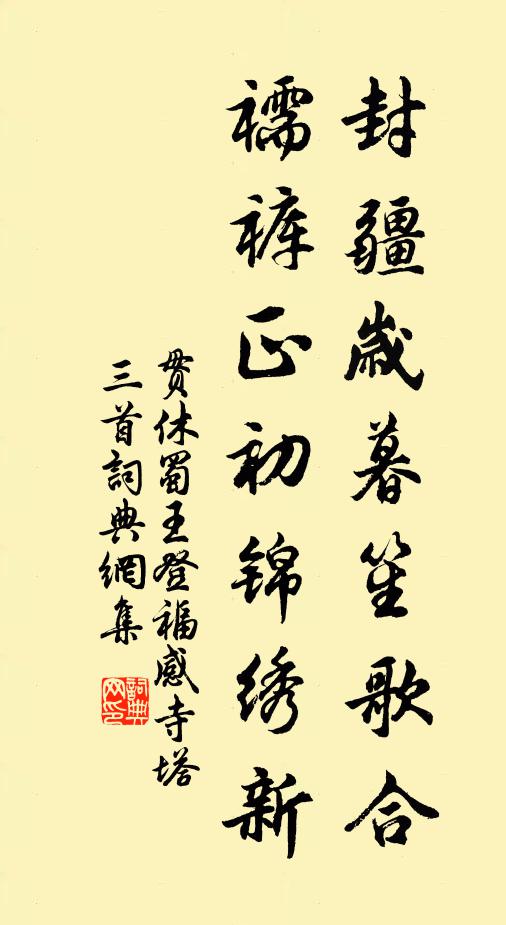 封疆歲暮笙歌合
襦裤正初锦绣新
贯休蜀王登福感寺塔
三首詞典網集
詞典网印